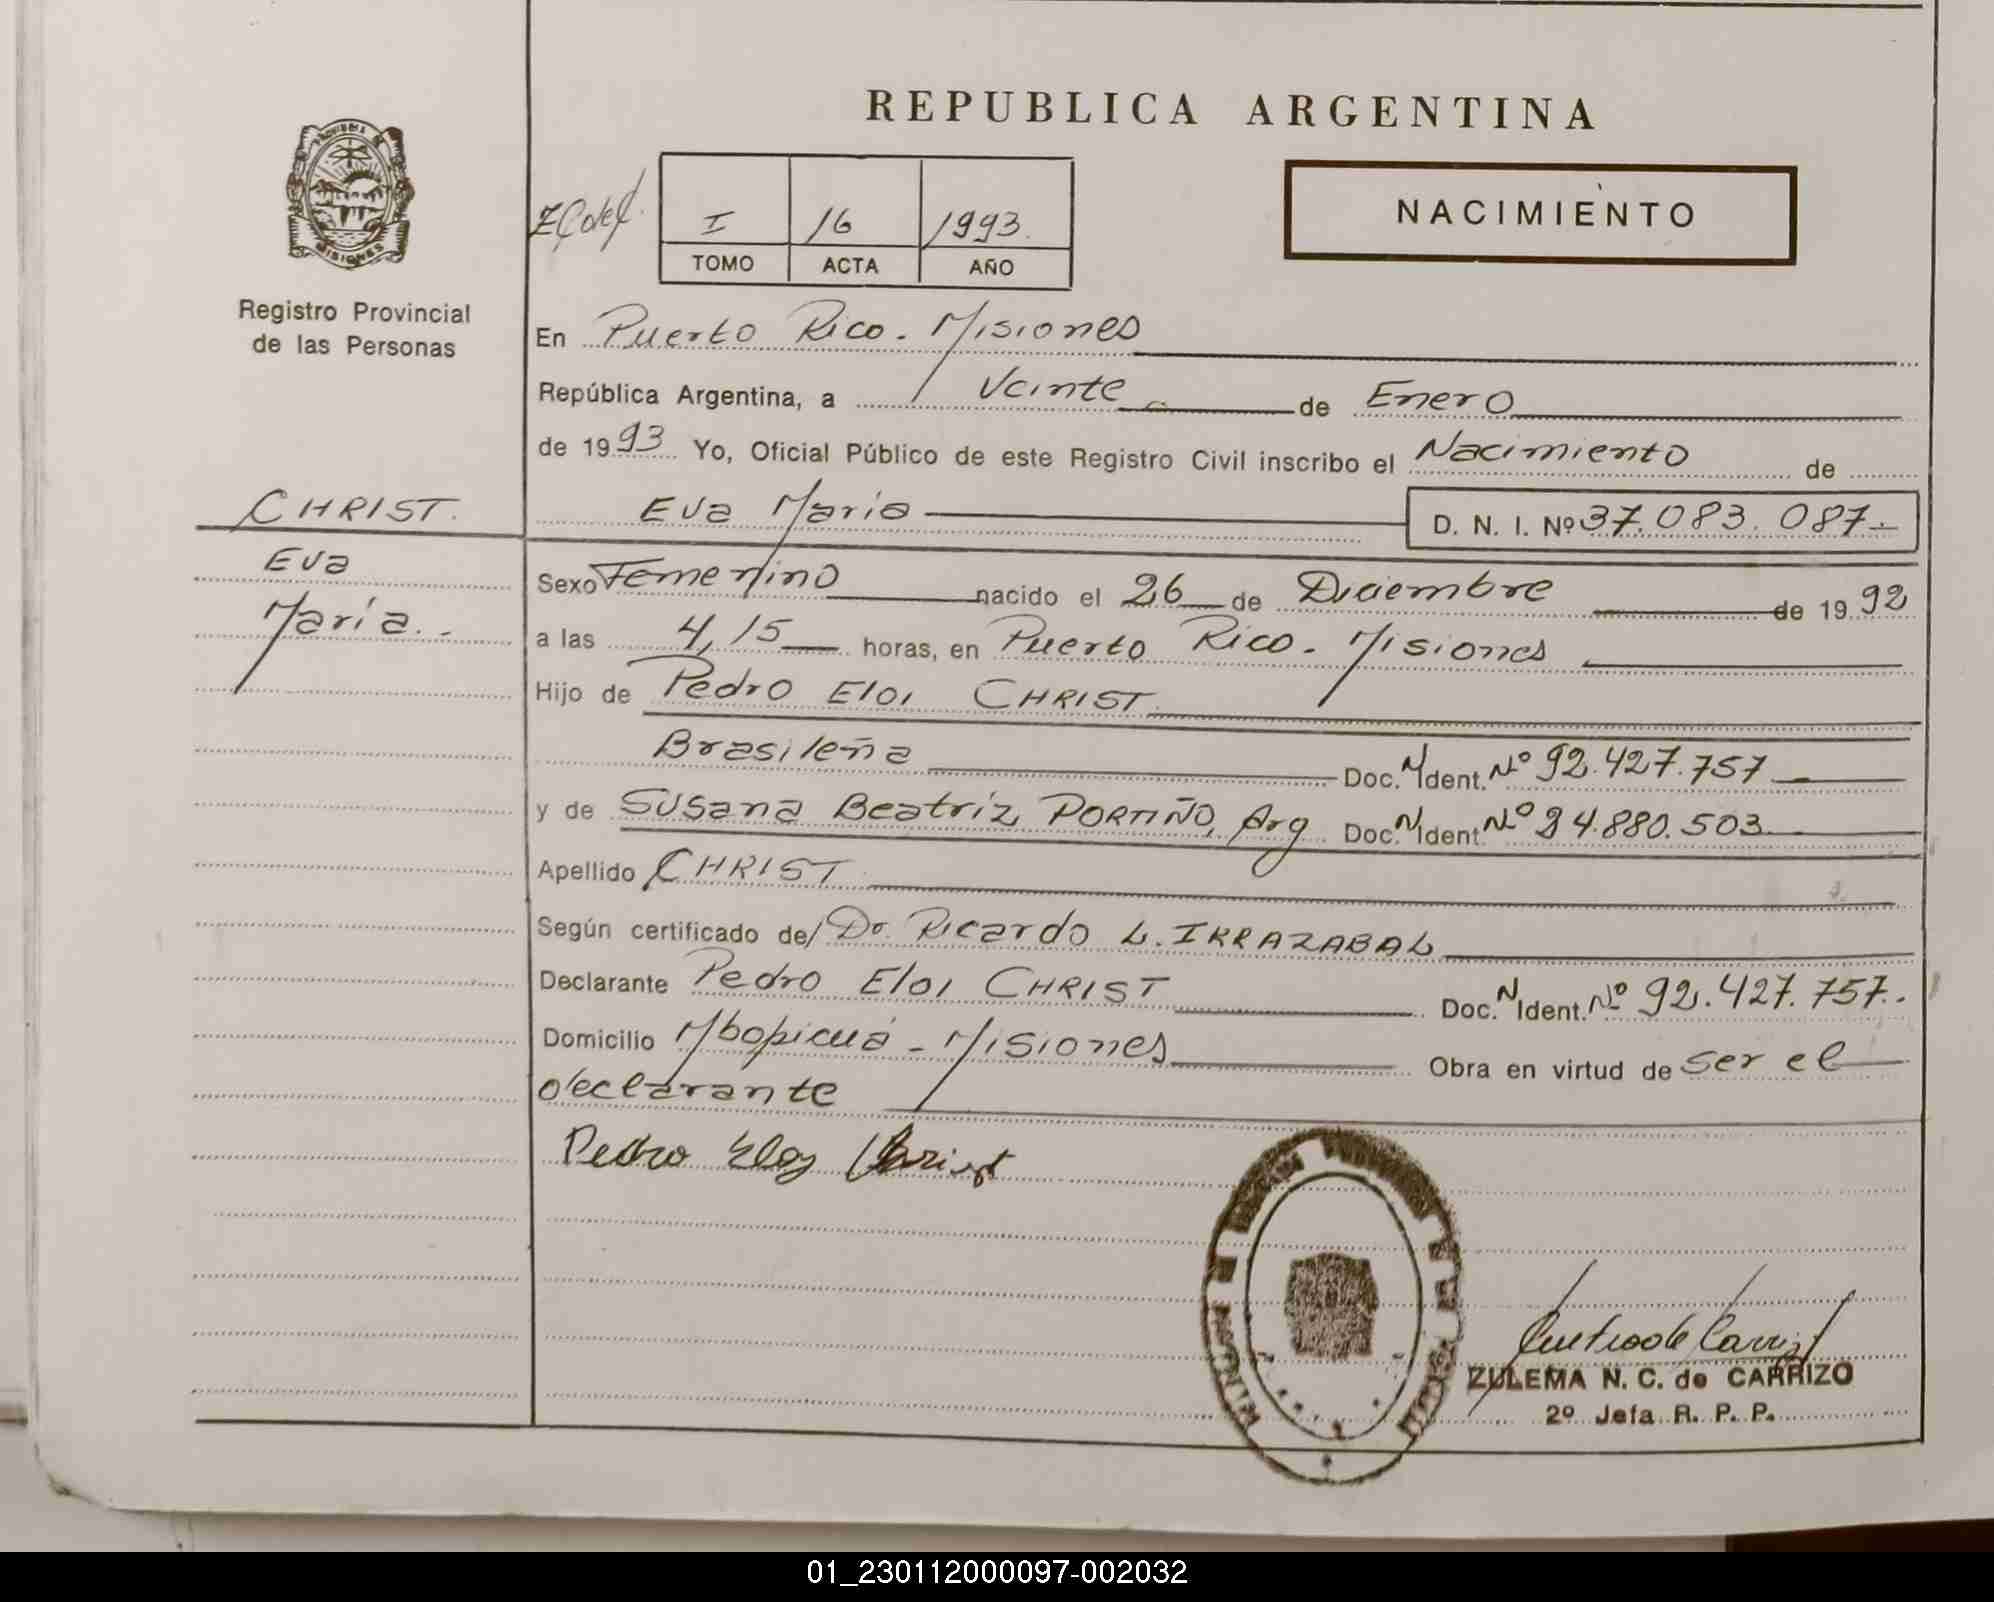 REPUBLICA ARGENTINA
PROVINCIA DE
MISIONES
Registro Provincial
de las Personas
I 16 1993.
TOMO ACTA AÑO
NACIMIENTO
En Puerto Rico. Misiones
República Argentina, a Veinte de Enero
de 1993 Yo, Oficial Público de este Registro Civil inscribo el Nacimiento de
Eva María D. N. I. Nº 37.083.087.-
CHRIST.
Eva
María.-
Sexo Femenino nacido el 26 de Diciembre de 1992
a las 4,15 horas, en Puerto Rico. Misiones
Hijo de Pedro Eloi CHRIST
Brasileña Doc. N Ident. Nº 92.427.757
y de Susana Beatriz PORTIÑO, Arg Doc. N Ident Nº 24.880.503
Apellido CHRIST
Según certificado de/ Dr. Ricardo L. IRRAZABAL
Declarante Pedro Eloi CHRIST Doc. N Ident. Nº 92.427.757.
Domicilio Mbopicuá - Misiones Obra en virtud de ser el
declarante
Pedro Eloy Christ
ZULEMA N. C. de CARRIZO
2º Jefa R. P. P.
01_230112000097-002032